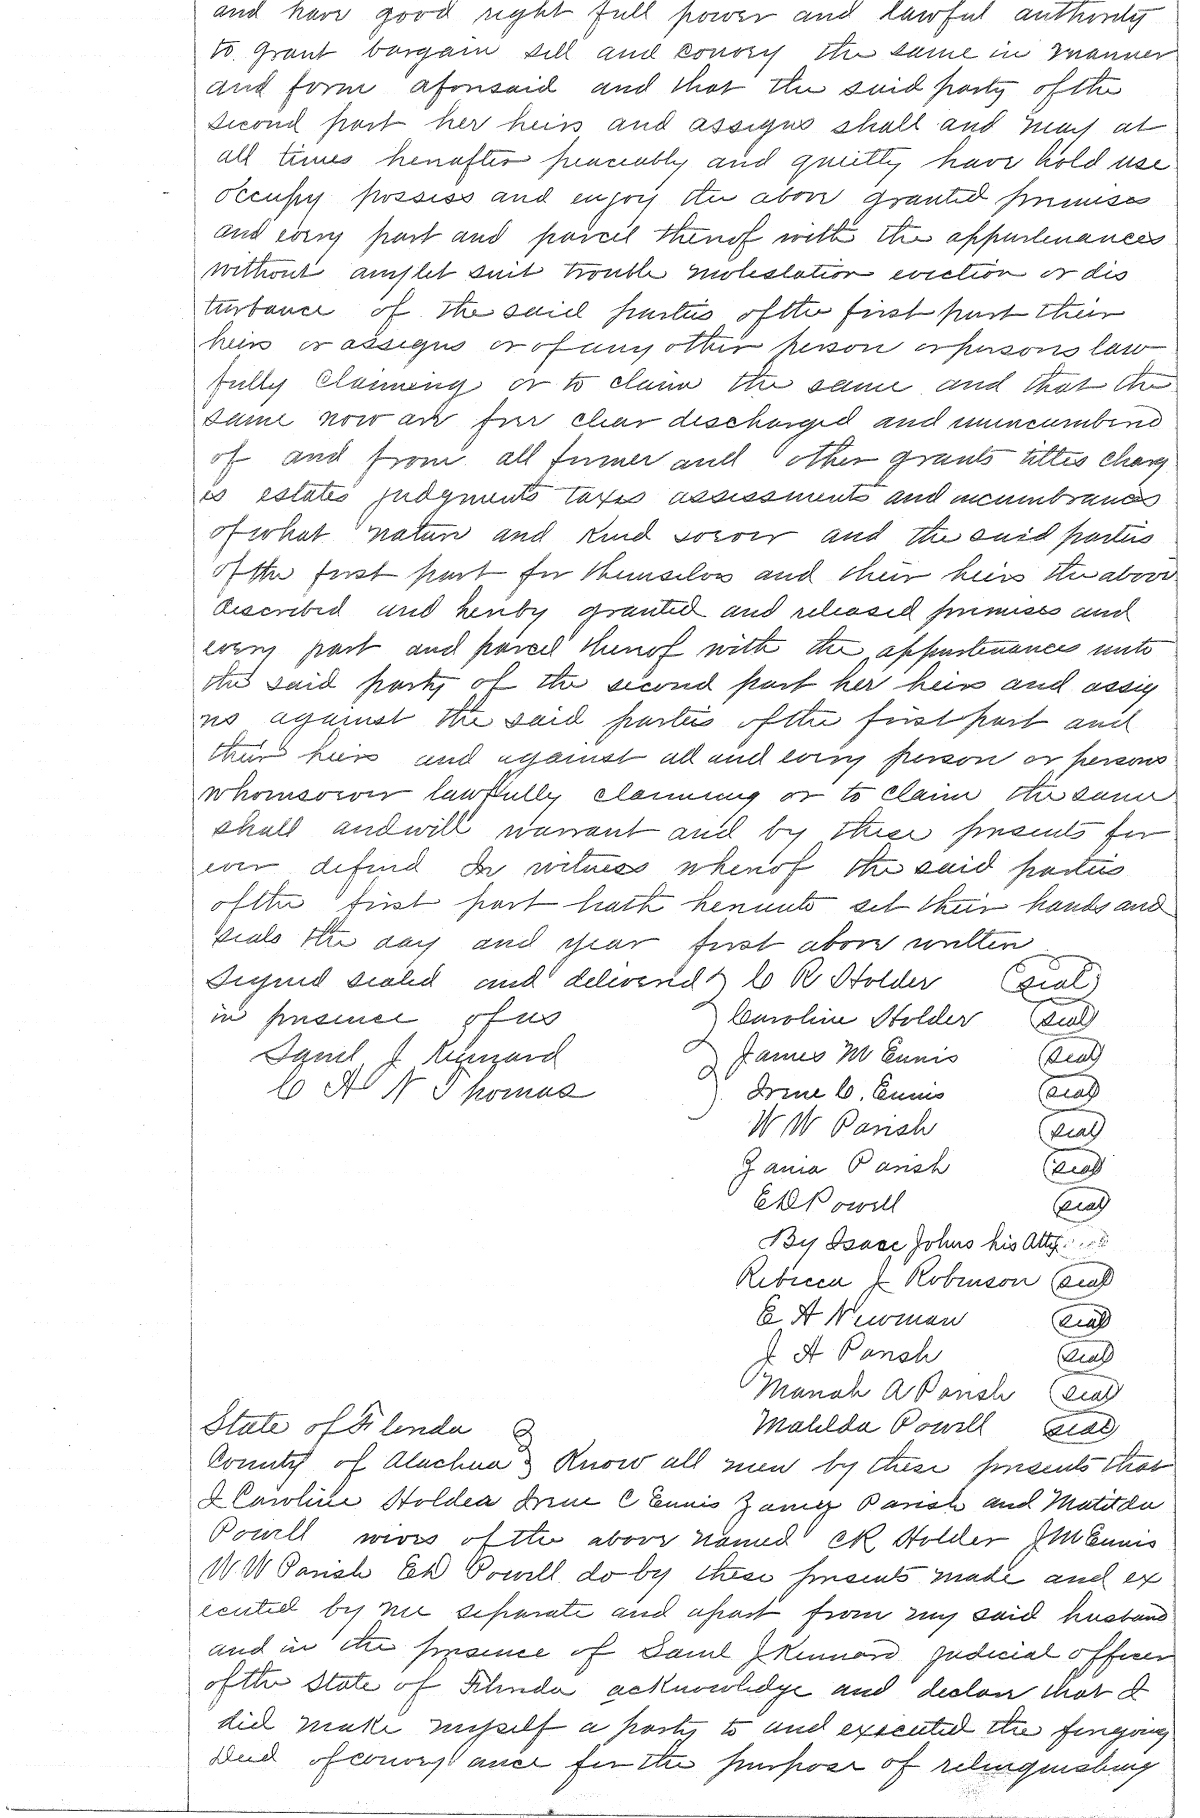 and have good right full power and lawful authority
to grant bargain sell and convey the same in manner
and form aforesaid and that the said party of the
second part her heirs and assigns shall and may at
all times hereafter peaceably and quietly have hold use
occupy possess and enjoy the above granted premises
and every part and parcel thereof with the appurtenances
without any let suit trouble molestation eviction or dis
turbance of the said parties of the first part their
heirs or assigns or of any other person or persons law
fully claiming or to claim the same and that the
same now are free clear discharged and unincumbered
of and from all former and other grants titles charg
es estates judgments taxes assessments and incumbrances
of what nature and kind soever and the said parties
of the first part for themselves and their heirs the above
described and hereby granted and released premises and
every part and parcel thereof with the appurtenances unto
the said party of the second part her heirs and assig
ns against the said parties of the first part and
their heirs and against all and every person or persons
whomsoever lawfully claiming or to claim the same
shall and will warrant and by these presents for
ever defend In witness whereof the said parties
of the first part hath hereunto set their hands and
seals the day and year first above written
Signed sealed and delivered C R Holder seal
in presence of us Caroline Holder seal
Saml J Kennard James M Ennis seal
C A N Thomas Irene C. Ennis seal
W W Parish seal
Zania Parish seal
E D Powell seal
By Isaac Johns his Atty
Rebecca J Robinson seal
E A Newman seal
J A Parish seal
Manah A Parish seal
Matilda Powell seal
State of Florida
County of Alachua Know all men by these presents that
I Caroline Holder Irene C Ennis Parish and Matilda
Powell wives of the above named CR Holder J M Ennis
W W Parish E D Powell do by these presents made and ex
ecuted by me separate and apart from my said husband
and in the presence of Saml J Kennard judicial officer
of the State of Florida acknowledge and declare that I
did make myself a party to and executed the foregoing
Deed of convey ance for the purpose of relinquishing